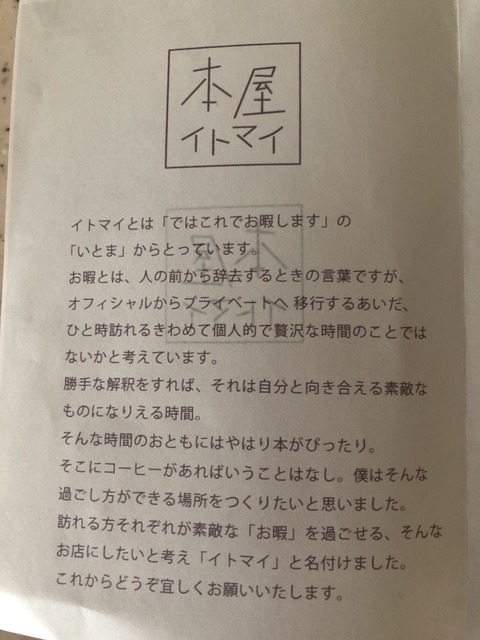 本屋
イトマイ
イトマイとは「ではこれでお暇します」の
「いとま」からとっています。
お暇とは、人の前から辞去するときの言葉ですが、
オフィシャルからプライベートへ 移行するあいだ、
ひと時訪れるきわめて個人的で贅沢な時間のことでは
ないかと考えています。
勝手な解釈をすれば、それは自分と向き合える素敵な
ものになりえる時間。
そんな時間のおともにはやはり本がぴったり。
そこにコーヒーがあればいうことはなし。僕はそんな
過ごし方ができる場所をつくりたいと思いました。
訪れる方それぞれが素敵な「お暇」を過ごせる、そんな
お店にしたいと考え「イトマイ」と名付けました。
これからどうぞ宜しくお願いいたします。